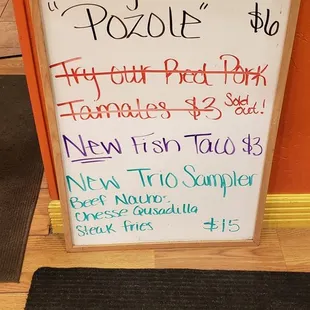 "Pozole" $6
Try our Red Pork
Tamales $3 Sold out!
New Fish Taco $3
New Trio Sampler
Beef Nachos
Cheese Qusadilla
Steak fries $15